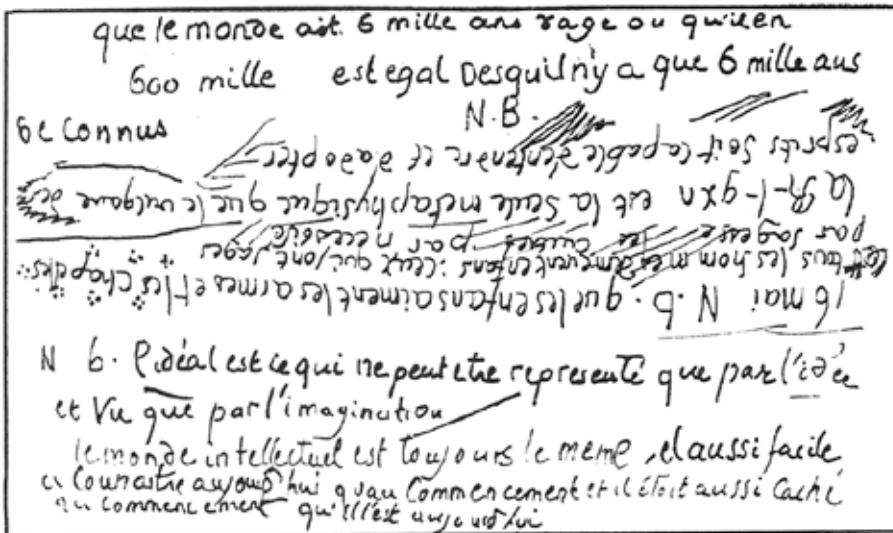 que le monde ait 6 mille ans rage ou qu'il en
600 mille est egal Desquil n'y a que 6 mille ans
N.B.
de Connus
16 mai N.b. que les enfans aiment les armes et les chapelles
tous les hommes demeurent enfans: ceux qui sont sages
par sagesse les par necessité
la R-l-gxn est la seule metaphysique que le vulgaire des
esprits soit capable d'entendre et d'adopter
N b. l'idéal est ce qui ne peut etre representé que par l'idée
et Vu que par l'imagination
le monde intellectuel est toujours le meme, et aussi facile
a Connaitre aujourd'hui quau Commencement et il étoit aussi Caché
au commencement qu'il l'est aujourd'hui